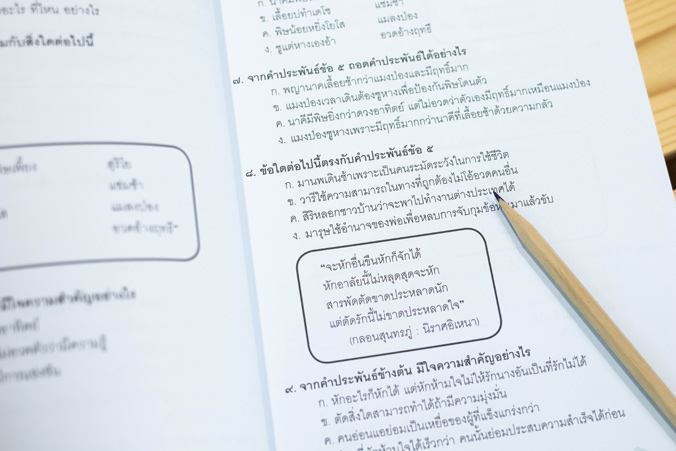 อะไร ที่ไหน อย่างไร
มกับสิ่งใดต่อไปนี้
สุริโย
แช่มช้า
แมลงป่อง
อวดอ้างฤทธี"
มีใจความสำคัญอย่างไร
ข. เลื้อยบ่ทำเดโช
ค. พิษน้อยหยิ่งโยโส
ง. ชูแต่หางเองอ้า
แช่มช้า
แมลงป่อง
อวดอ้างฤทธี
๗. จากคำประพันธ์ข้อ ๕ ถอดคำประพันธ์ได้อย่างไร
ก. พญานาคเลื้อยช้ากว่าแมงป่องและมีฤทธิ์มาก
ข. แมงป่องเวลาเดินต้องชูหางเพื่อป้องกันพิษโดนตัว
ค. นาคีมีพิษยิ่งกว่าดวงอาทิตย์ แต่ไม่อวดว่าตัวเองมีฤทธิ์มากเหมือนแมงป่อง
ง. แมงป่องชูหางเพราะมีฤทธิ์มากกว่านาคีที่เลื้อยช้าด้วยความกลัว
๘. ข้อใดต่อไปนี้ตรงกับคำประพันธ์ข้อ ๕
ก. มานพเดินช้าเพราะเป็นคนระมัดระวังในการใช้ชีวิต
ข. วารีใช้ความสามารถในทางที่ถูกต้องไม่โอ้อวดคนอื่น
ค. สิริหลอกชาวบ้านว่าจะพาไปทำงานต่างประเทศได้
ง. มารุษใช้อำนาจของพ่อเพื่อหลบการจับกุมข้อหาเมาแล้วขับ
"จะหักอื่นขืนหักก็จักได้
หักอาลัยนี้ไม่หลุดสุดจะหัก
สารพัดตัดขาดประหลาดนัก
แต่ตัดรักนี้ไม่ขาดประหลาดใจ"
(กลอนสุนทรภู่ : นิราศอิเหนา)
๙. จากคำประพันธ์ข้างต้น มีใจความสำคัญอย่างไร
ก. หักอะไรก็หักได้ แต่หักห้ามใจไม่ให้รักนางอันเป็นที่รักไม่ได้
ข. ตัดสิ่งใดสามารถทำได้ถ้ามีความมุ่งมั่น
ค. คนอ่อนแอย่อมเป็นเหยื่อของผู้ที่แข็งแกร่งกว่า
ได้เร็วกว่า คนนั้นย่อมประสบความสำเร็จได้ก่อน